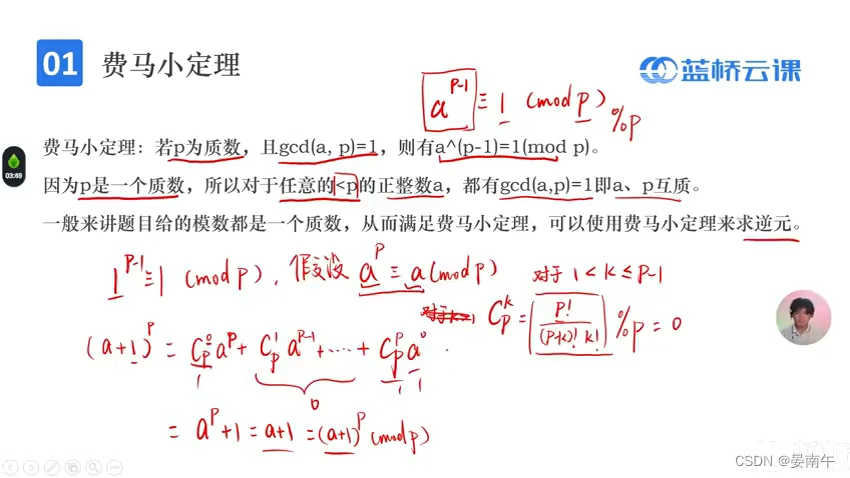 01 费马小定理
蓝桥云课
a^(p-1) ≡ 1 (mod p) %p
费马小定理：若p为质数，且gcd(a, p)=1，则有a^(p-1)=1(mod p)。
03:49
因为p是一个质数，所以对于任意的<p的正整数a，都有gcd(a,p)=1即a、p互质。
一般来讲题目给的模数都是一个质数，从而满足费马小定理，可以使用费马小定理来求逆元。
1^(p-1) ≡ 1 (mod p)，假设 a^p ≡ a (mod p) 对于 1<k≤p-1
C_p^k = p!/((p+k)! k!) %p = 0
(a+1)^p = C_p^0 a^p + C_p^1 a^(p-1) + …… + C_p^p a^0
1 1 1
0
= a^p + 1 = a+1 = (a+1)^p (mod p)
CSDN @晏南午